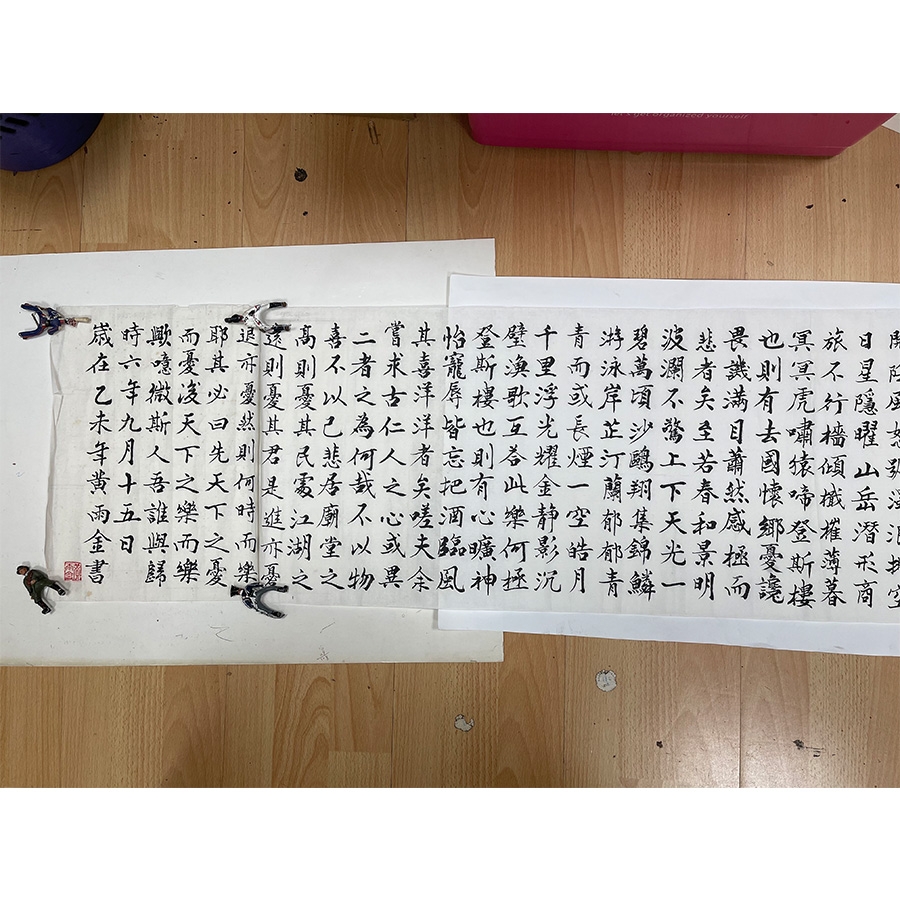 let's get organized yourself
開陰風怒號濁浪排空
日星隱曜山岳潛形商
旅不行檣傾檝摧薄暮
冥冥虎嘯猿啼登斯樓
也則有去國懷鄉憂讒
畏譏滿目蕭然感極而
悲者矣至若春和景明
波瀾不驚上下天光一
碧萬頃沙鷗翔集錦鱗
游泳岸芷汀蘭郁郁青
青而或長煙一空皓月
千里浮光耀金静影沉
璧漁歌互答此樂何極
登斯樓也則有心曠神
怡寵辱皆忘把酒臨風
其喜洋洋者矣嗟夫余
嘗求古仁人之心或異
二者之為何哉不以物
喜不以己悲居廟堂之
高則憂其民處江湖之
遠則憂其君是進亦憂
退亦憂然則何時而樂
耶其必曰先天下之憂
而憂後天下之樂而樂
歟噫微斯人吾誰與歸
時六年九月十五日
歲在乙未年黃雨金書